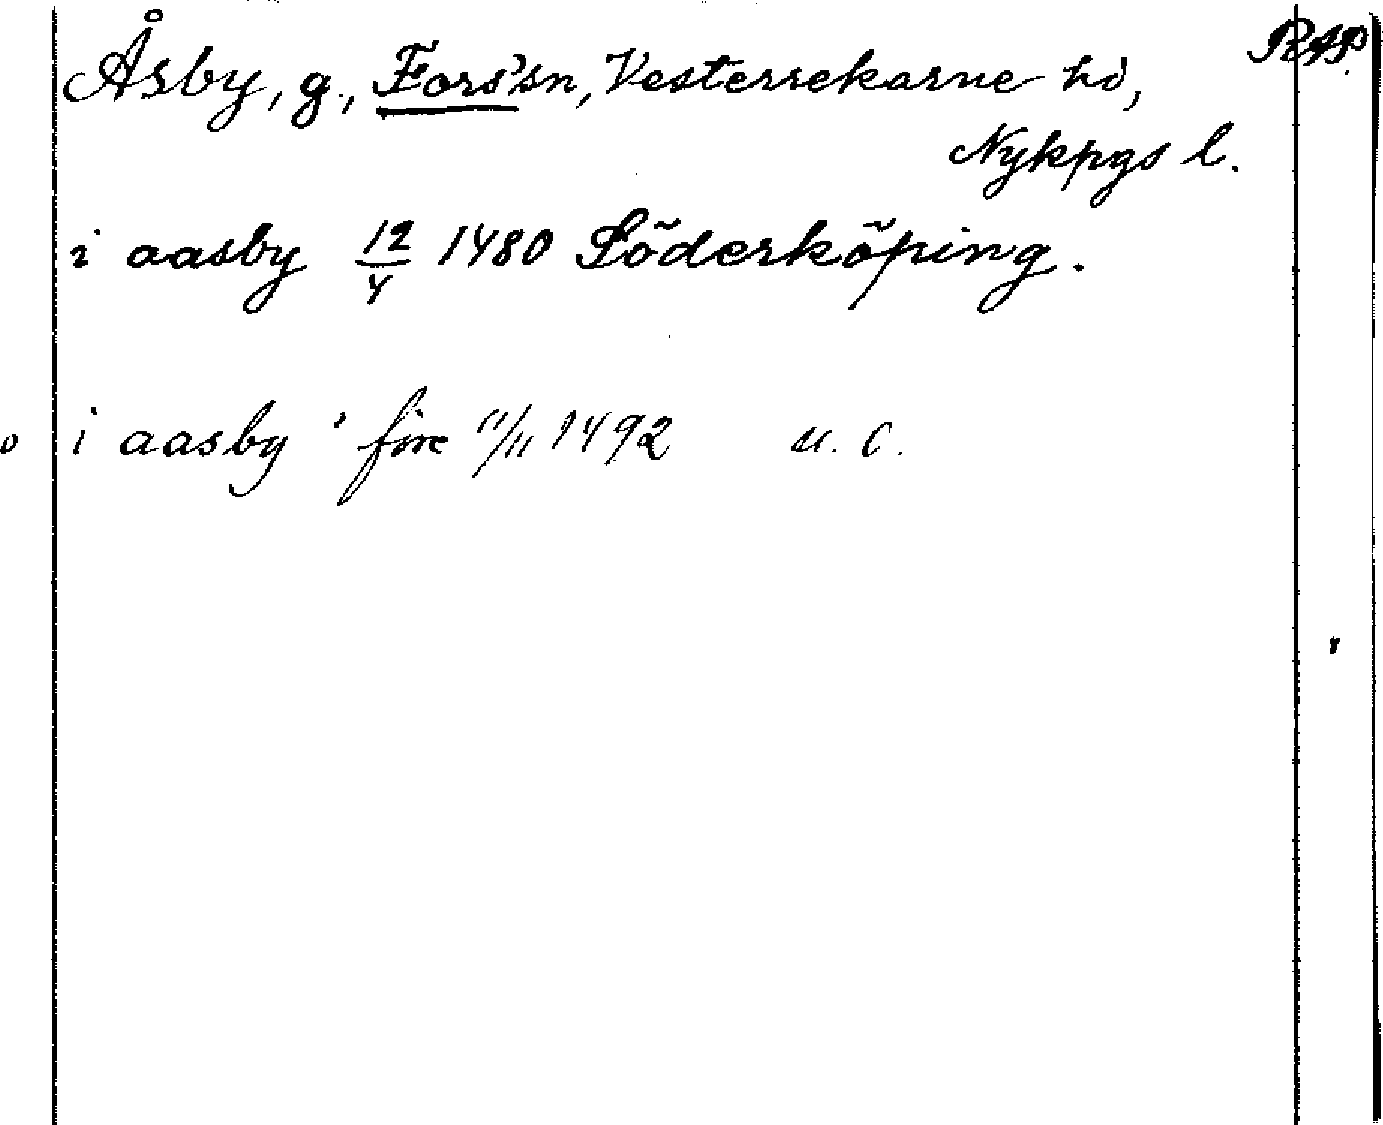 Åsby, g., Fors' sn, Vesterrekarne hd, RAP.
Nykpgs l.
i aasby 12/4 1480 Söderköping.
o i aasby före 11/11 1492 u. o.